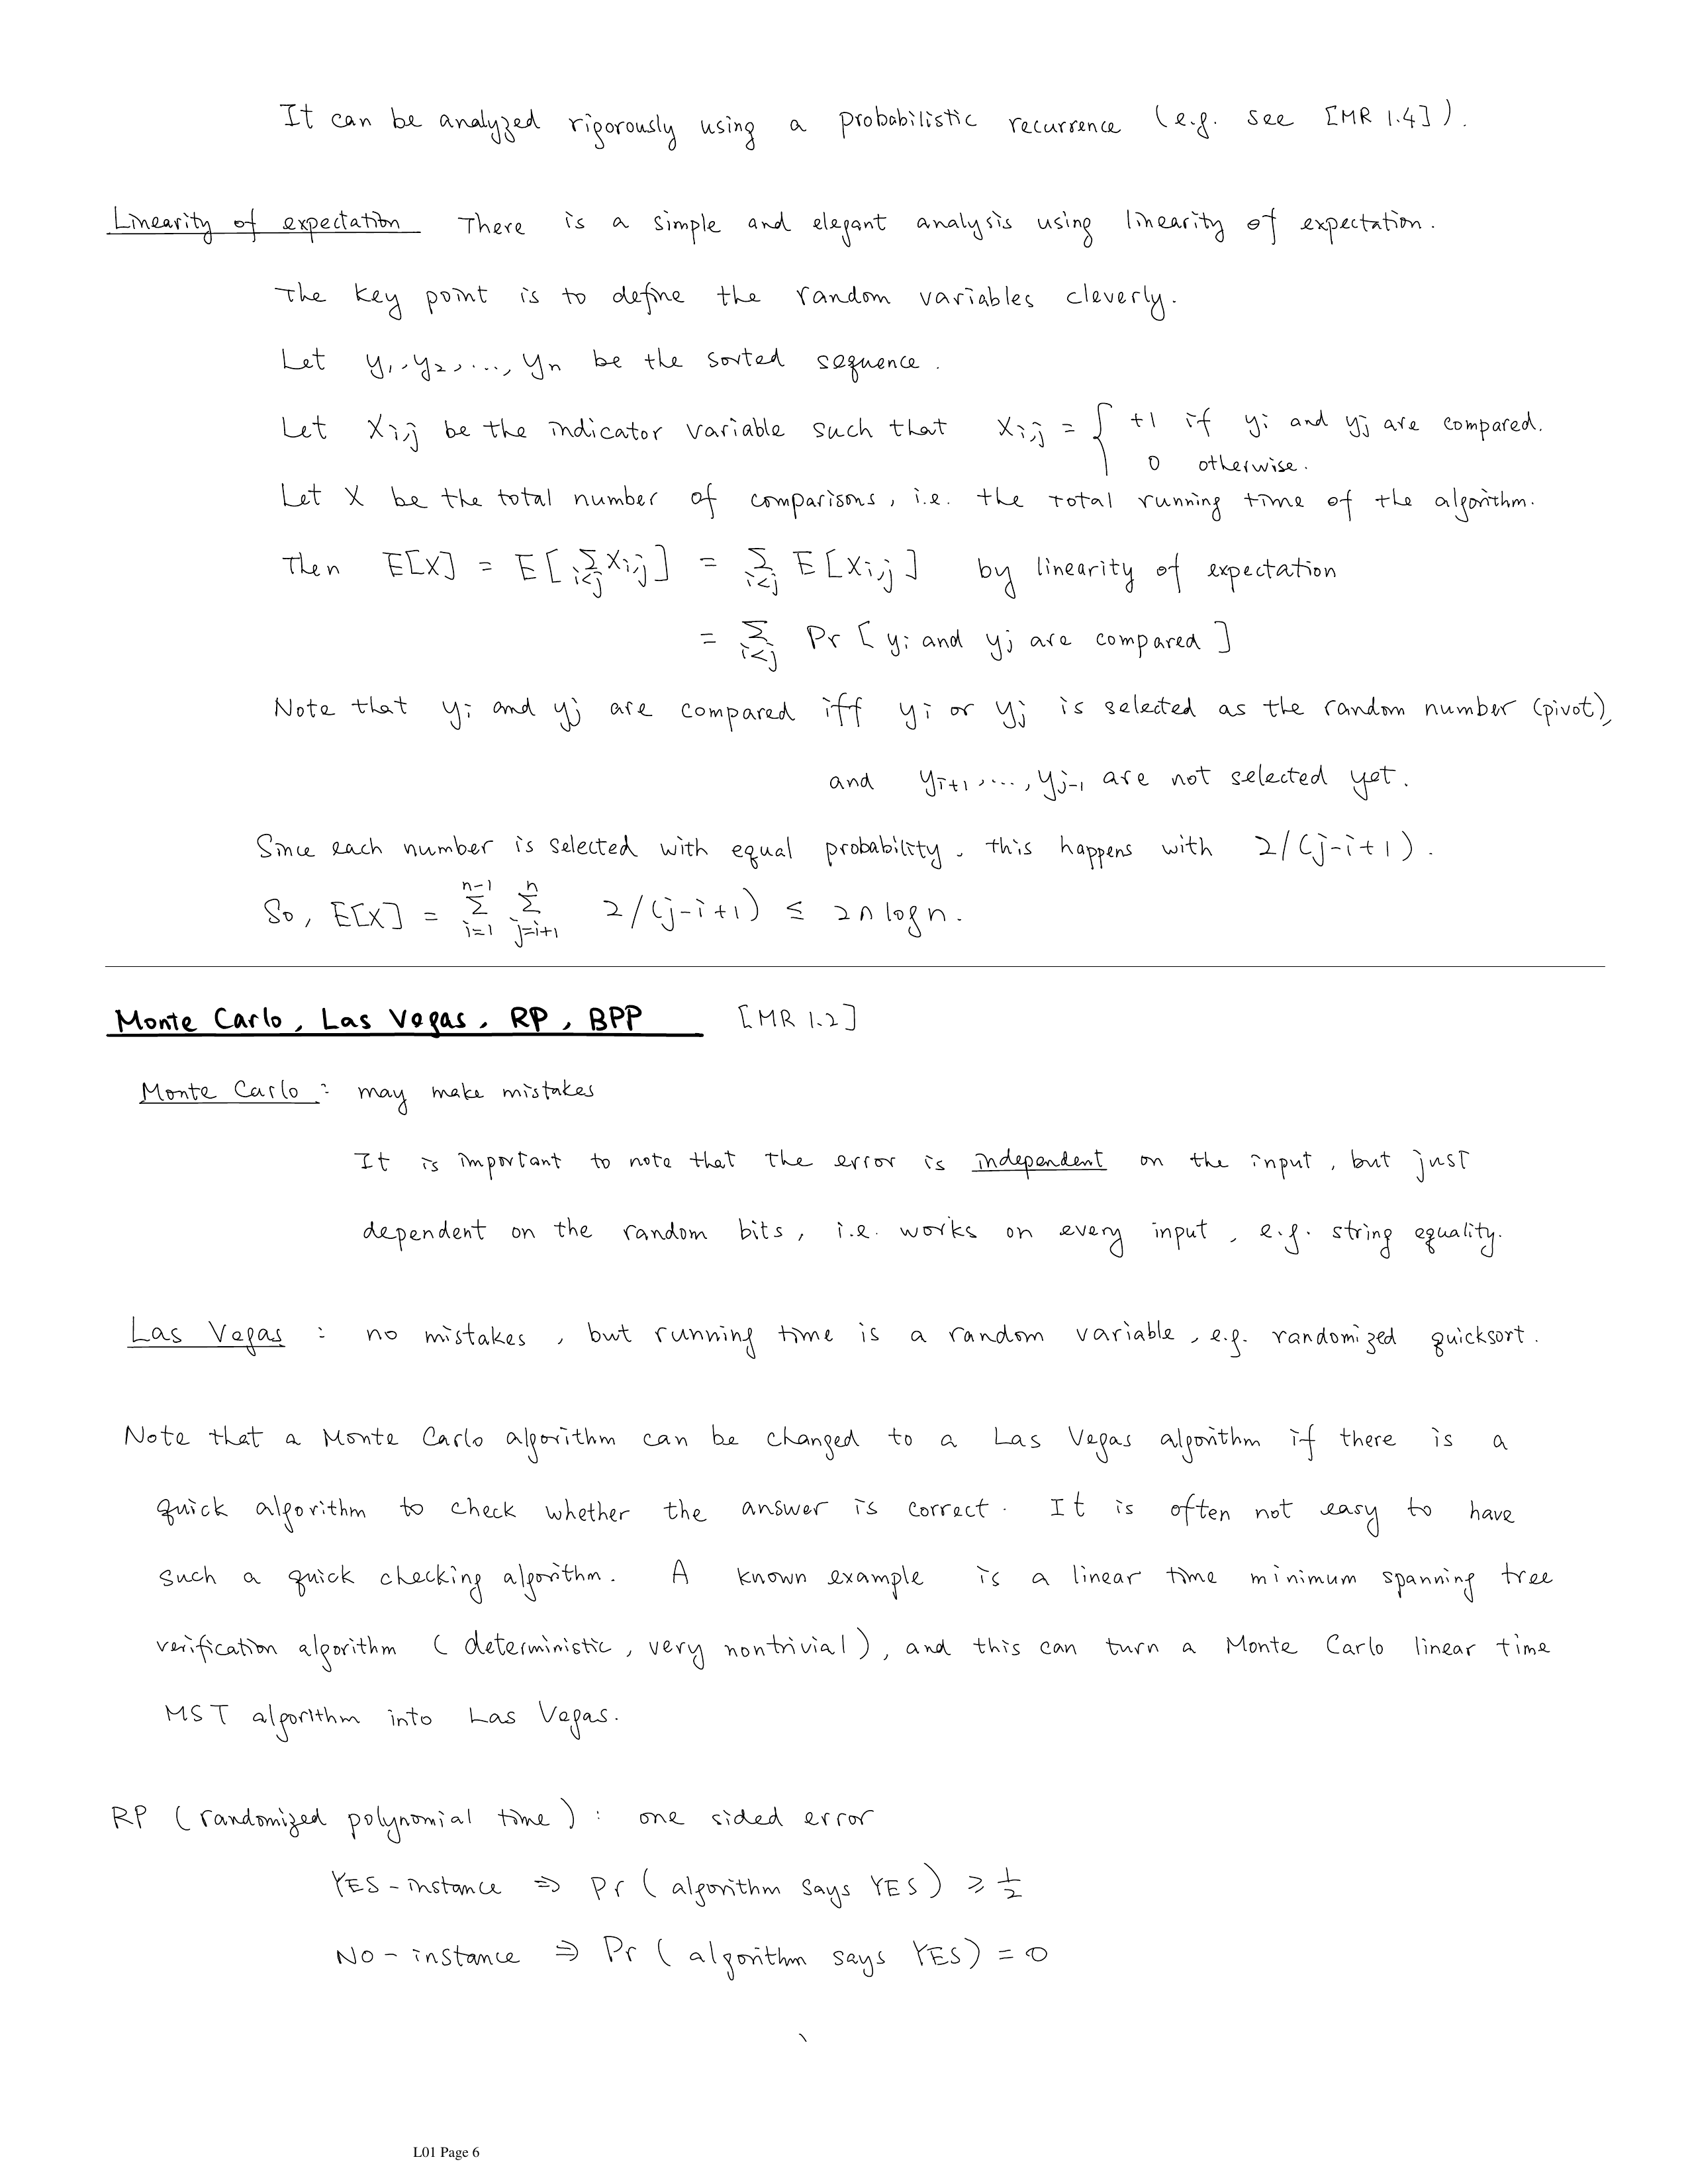 It can be analyzed rigorously using a probabilistic recurrence (e.g. see [MR 1.4]).
Linearity of expectation There is a simple and elegant analysis using linearity of expectation.
The key point is to define the random variables cleverly.
Let y₁, y₂, ..., yₙ be the sorted sequence.
Let X_{i,j} be the indicator variable such that X_{i,j} = { +1 if y_i and y_j are compared.
0 otherwise.
Let X be the total number of comparisons, i.e. the total running time of the algorithm.
Then E[X] = E[ Σ_{i<j} X_{i,j} ] = Σ_{i<j} E[X_{i,j}] by linearity of expectation
= Σ_{i<j} Pr [ y_i and y_j are compared ]
Note that y_i and y_j are compared iff y_i or y_j is selected as the random number (pivot),
and y_{i+1}, ..., y_{j-1} are not selected yet.
Since each number is selected with equal probability, this happens with 2/(j-i+1).
So, E[X] = Σ_{i=1}^{n-1} Σ_{j=i+1}^{n} 2/(j-i+1) ≤ 2n log n.
Monte Carlo, Las Vegas, RP, BPP [MR 1.2]
Monte Carlo : may make mistakes
It is important to note that the error is independent on the input, but just
dependent on the random bits, i.e. works on every input, e.g. string equality.
Las Vegas : no mistakes, but running time is a random variable, e.g. randomized quicksort.
Note that a Monte Carlo algorithm can be changed to a Las Vegas algorithm if there is a
quick algorithm to check whether the answer is correct. It is often not easy to have
such a quick checking algorithm. A known example is a linear time minimum spanning tree
verification algorithm (deterministic, very nontrivial), and this can turn a Monte Carlo linear time
MST algorithm into Las Vegas.
RP (randomized polynomial time) : one sided error
YES-instance ⇒ Pr (algorithm says YES) ≥ 1/2
NO-instance ⇒ Pr (algorithm says YES) = 0
L01 Page 6